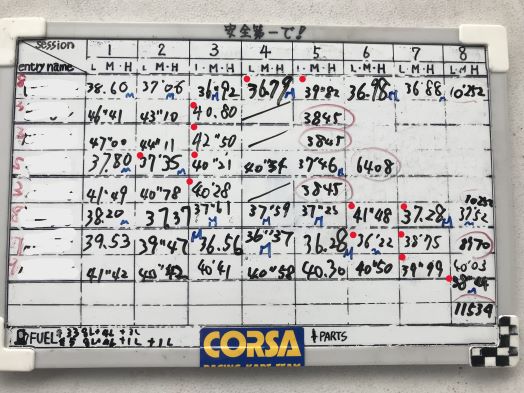 安全第一で!
session 1 2 3 4 5 6 7 8
entry name L・M・H L・M・H L・M・H L・M・H L・M・H L・M・H L・M・H L・M・H
38.60 M 37"06 M 36"92 M 36"79 M 39"82 36"98 M 36"88 M 10"252
46"41 43"10 40.80 3845
47"00 44"11 42"50 3845
37.80 M 37"35 M 40"21 40"34 37"46 M 6408
41"49 40"78 40"28 3845
10252
38.20 M 37,37 37"61 M 37"59 M 37"25 M 41"48 37.28 M 37"52 M
39.53 39"47 M 36.56 36"37 M 36.28 M 36"22 M 38"75 8970
41"42 40"42 40"41 40"58 40.30 40"50 39"99 40"03
38"44 M
11534
FUEL
CORSA
PARTS
RACING KART TEAM